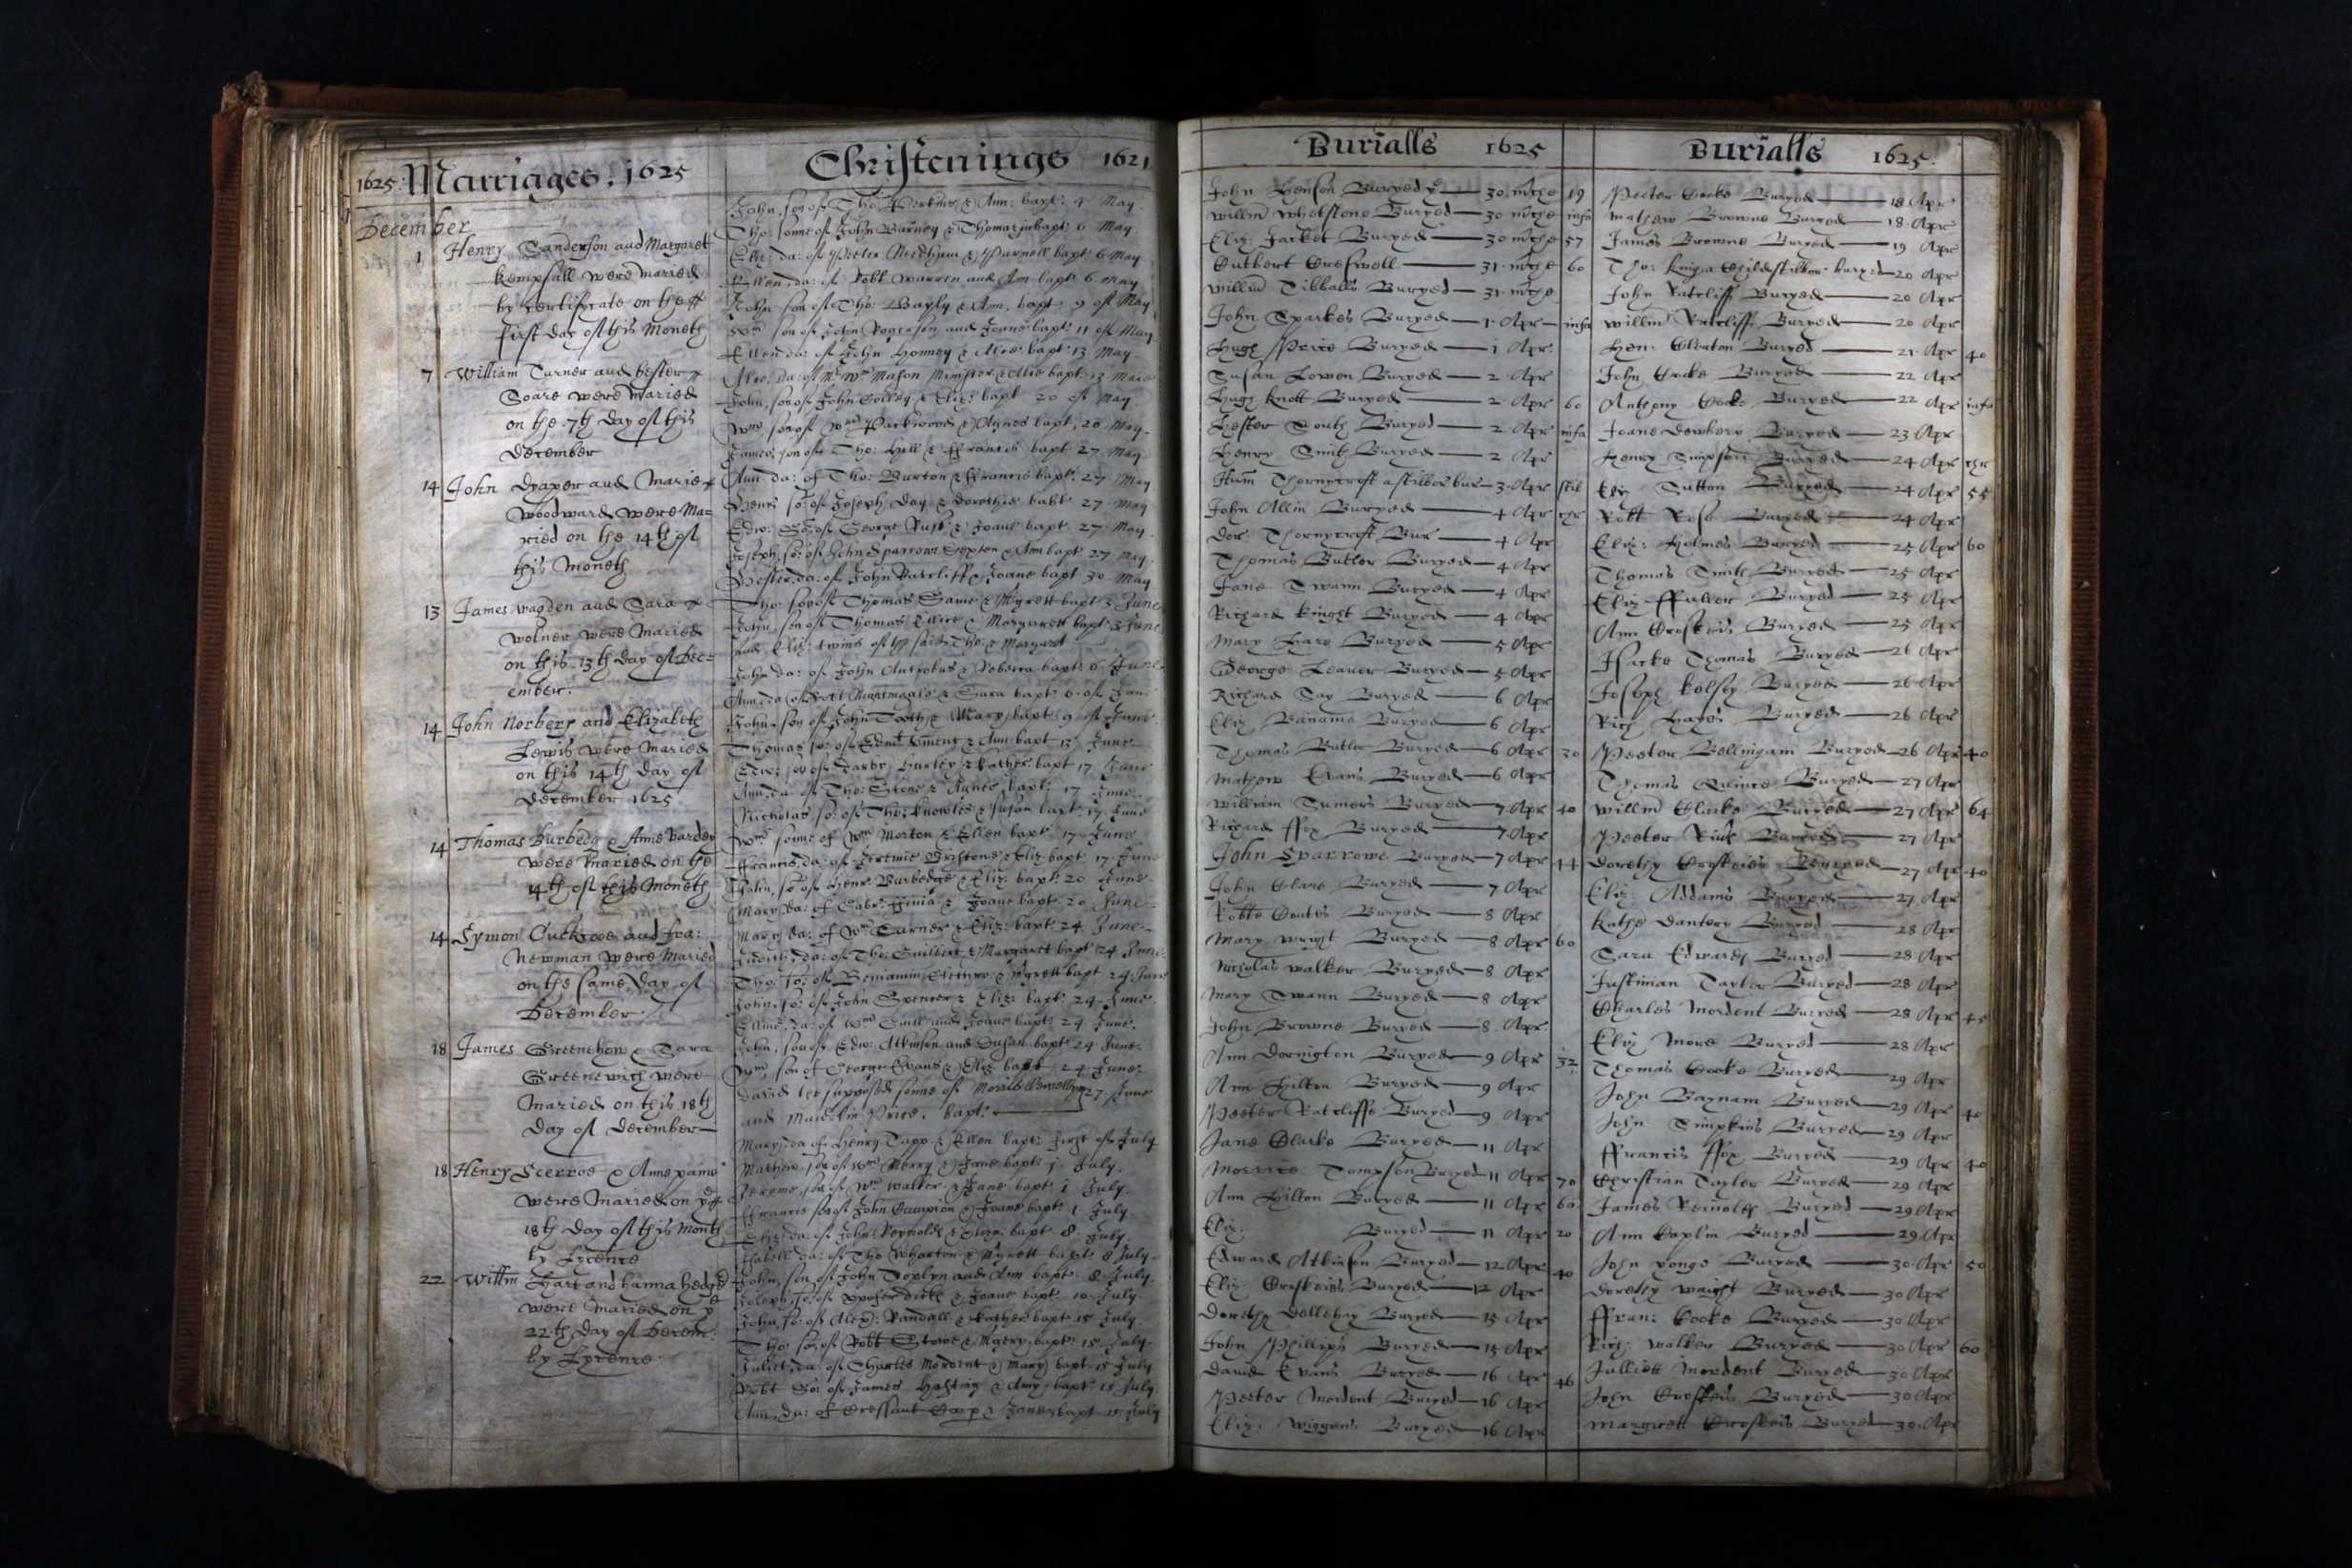 1625 Marriages. 1625
December
1 Henry Sanderson and Margaret
Kempsall were Maried
by Certificate on the
first day of this Moneth
7 William Turner and hester
Soare were Maried
on the 7th day of this
December
14 John Draper and Marie
Woodward were Ma=
ried on the 14th of
this Moneth
13 James wagden and Sara
wolner were Maried
on this 13th day of Dec=
ember.
14 John Norbery and Elizabeth
Lewis were Maried
on this 14th day of
December 1625
14 Thomas Burbedg & Anne Varden
were Maried on the
14th of this Moneth
14 Symon Cuckooe and
Newman were Maried
on the same day of
December
18 James Greenehow & Sara
Greenewich were
Maried on this 18th
day of December
18 Henry & Anne
were Maried on ye
18th day of this Month
by Licence
22 Willm Hart and hanna
were Maried on ye
22th day of Decem:
by Lycence
Christenings 1625
John, son of Tho: Perkins & Ann: bapt: 4 May
Tho: sonne of John Barney & Thomazin bapt: 6 May
Eliz: da: of Peeter Needham & Parnell bapt: 6 May
Ellen, da: of Robt Warren and Ann bapt: 6 may
John son of Tho: Bayly & Ann, bapt: 9 of May
Wm son of John Rogerson and Joane bapt: 11 of May
Ellen da: of John Honney & Alice bapt: 13 May
Alice, da: of Mr Wm Mason Minister & Alice bapt: 13 Maie
John, son of John Colley & Eliz: bapt 20 of May
Wm, son of Wm Packwood & Agnes bapt: 20 May
James son of Tho: Hill & Francis bapt 27 May
Ann da: of Tho: Burton & Francis bapt: 27 May
Henry so: of Joseph Day & Dorothie babt 27 may
Edw: So: of George Rust & Joane bapt 27 May
Joseph, so: of John Sparrowe Sexton & Ann bapt 27 May
Hester, da: of John Ratcliff & Joane bapt 30 May
Tho: son of Thomas Same & Mgrett bapt 3 June
John, son of Thomas Ellice & Margarett bapt 3 June
and Eliz: twins of ye said Tho: & Margaret
John da: of John Antrobus & Rebecca bapt: 6 June
Ann, da: of Robt Nightingale & Sara bapt 6 of June
John, son of John Tooth & Mary bapt: 9 of June
Thomas so: of Edm: Vincent & Ann bapt 13 June
Edw: son of Darby Hurley & Kather bapt 17 June
Ann, da: of Tho: Stone & Agnes, bapt: 17 June
Nicholas, so: of Tho: Knowles & Susan bapt: 17 June
Wm sonne of Wm Morton & Ellen bapt: 17 June
Francis, da: of Jeremie & Eliz bapt: 17 June
John, so: of Henr Burbedge & Eliz: bapt: 20 June
Mary da: of & Joane bapt 20 June
Mary da: of Wm Turner & Eliz: bapt: 24 June
Judith, da: of Tho: Guilbert & Margarett bapt 24 June
Tho: so: of Beniamin & Mgrett bapt 24 June
John, so: of John Spencer & Eliz: bapt: 24 June
Elline, da: of Wm Smith and Joane bapt: 24 June
John, son of Edw: Atkinson and Susan bapt 24 June
Wm, son of George Evans & Eliz bapt 24 June
David the supposed sonne of Morris 27 June
and Maudlin Price. bapt:
Mary da of Henry Tapp & Ellen bapt: first of July
Mathew, son of Wm Merry & Jane bapt: 1 July
Jerome, son of Wm Walter & Jane bapt 1 July
Francis son of John Campion & Joane bapt: 1 July
Eliz: da: of John Reynolds & Eliza: bapt 8 July
Isabell da: of Tho: Wharton & Mgrett bapt: 8 July
John, son of John Joplyn and Ann bapt: 8 July
Joseph, so: of & Joane bapt 10 July
John, so: of Alex: Randall & Kather bapt 15 July
Tho: so: of Robt Stone & Mgery bapt: 15 July
Juliet, da: of Charles Mordent & Mary bapt 15 July
Robt So: of James & Amy bapt: 15 July
Ann, da: of Cressant Coop & Jane bapt 15 July
Burialls 1625
John Henson Buryed ye 30 mche 19
Willm Whelstone Buryed 30 mche infa
Eliz: Jacket Buryed 30 mche 57
Cutbert Creswell 31 mche 60
Willm Tibballs Buryed 31 mche
John Sparkes Buryed 1 Apr infa
Hugh Price Buryed 1 Apr
Susan Lowen Buryed 2 Apr
Hugh Knott Buryed 2 Apr 60
Hester South Buryed 2 Apr infa
Henry Smith Buryed 2 Apr
Hum Thornycroft a stilbor bur 3 Apr stil
John Allin Buryed 4 Apr chr
Dor: Thornycroft Bur 4 Apr
Thomas Butler Buryed 4 Apr
Jane Swann Buryed 4 Apr
Richard Knight Buryed 4 Apr
Mary Hare Buryed 5 Apr
George Leaver Buryed 5 Apr
Richard Say Buryed 6 Apr
Eliz Baname Buryed 6 Apr
Thomas Butler Buryed 6 Apr 30
Mathew Evans Buryed 6 Apr
William Sumers Buryed 7 Apr 40
Richard ffox Buryed 7 Apr
John Sparrowe Buryed 7 Apr 44
John Clare Buryed 7 Apr
Robte Coates Buryed 8 Apr
Mary Wright Buryed 8 Apr 60
Nicholas Walker Buryed 8 Apr
Mary Swann Buryed 8 Apr
John Browne Buryed 8 Apr
Ann Dornigton Buryed 9 Apr 32
Ann Hilton Buryed 9 Apr
Peeter Ratcliffe Buryed 9 Apr
Jane Clarke Buryed 11 Apr
Morrice Tompson Buryed 11 Apr 70
Ann Hilton Buryed 11 Apr 60
Eliz: Buryed 11 Apr 20
Edward Atkinson Buryed 12 Apr 40
Eliz: Croskeies Buryed 12 Apr
Dorethy Dellehay Buryed 15 Apr
John Phillips Buryed 15 Apr
David Evans Buryed 16 Apr 46
Peeter Mordent Buryed 16 Apr
Eliz: Wiggens Buryed 16 Apr
Burialls 1625
Peeter Cooke Buryed 18 Apr
Mathew Browne Buryed 18 Apr
James Browne Buryed 19 Apr
Tho: Childe stilbor buryed 20 Apr
John Ratcliff Buryed 20 Apr
Willm Ratcliffe Buryed 20 Apr
Hen: Cleaton Buryed 21 Apr 40
John Cocke Buryed 22 Apr
Anthony Cooke Buryed 22 Apr infa
Joane Dewbery Buryed 23 Apr
Henry Simpson Buryed 24 Apr chr
Eliz Sutton Buryed 24 Apr 55
Robt Rose Buryed 24 Apr
Eliz: Holmes Buryed 25 Apr 60
Thomas Smith Buryed 25 Apr
Eliz ffuller Buryed 25 Apr
Ann Croskeis Buryed 25 Apr
Isacke Thomas Buryed 26 Apr
Joseph Kelsey Buryed 26 Apr
Rich Hayes Buryed 26 Apr
Peeter Bellingam Buryed 26 Apr 40
Thomas Quince Buryed 27 Apr
Willm Clarke Buryed 27 Apr 64
Peeter Buryed 27 Apr
Dorethy Croskeies Buryed 27 Apr 40
Eliz: Addams Buryed 27 Apr
Kathe Dantery Buryed 28 Apr
Sara Edwards Buryed 28 Apr
Justiman Tayler Buryed 28 Apr
Charles Mordent Buryed 28 Apr 45
Eliz More Buryed 28 Apr
Thomas Cooke Buryed 29 Apr
John Baynam Buryed 29 Apr 40
John Simpkins Buryed 29 Apr
ffrancis ffox Buryed 29 Apr 40
Christian Tayler Buryed 29 Apr
James Reinolds Buryed 29 Apr
Ann Joplin Buryed 29 Apr
John Yonge Buryed 30 Apr 50
Dorethy Wright Buryed 30 Apr
ffran: Cooke Buryed 30 Apr
Rich: Walker Buryed 30 Apr 60
Julliott Mordent Buryed 30 Apr
John Croskeis Buryed 30 Apr
Margrett Croskeis Buryed 30 Apr